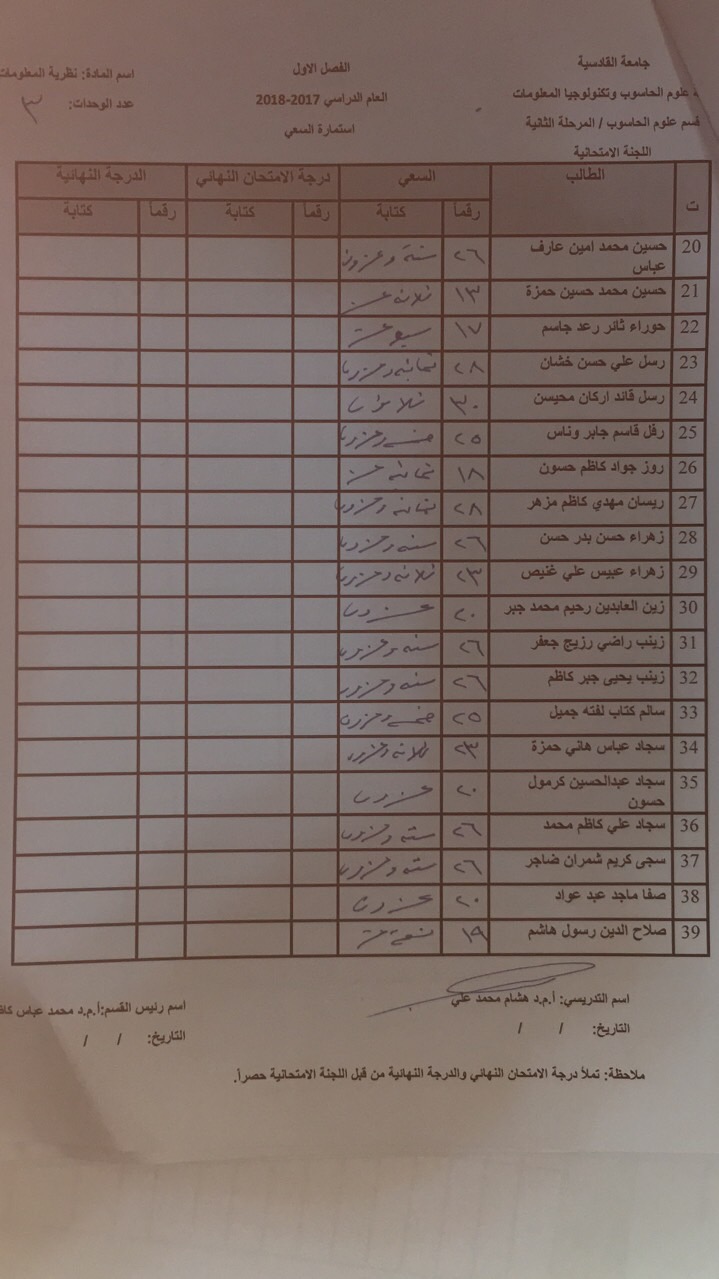 جامعة القادسية
علوم الحاسوب وتكنولوجيا المعلومات
قسم علوم الحاسوب / المرحلة الثانية
اللجنة الامتحانية
الفصل الاول
العام الدراسي 2017-2018
استمارة السعي
اسم المادة: نظرية المعلومات
عدد الوحدات: ٣
ت الطالب السعي درجة الامتحان النهائي الدرجة النهائية
رقماً كتابة رقماً كتابة رقماً كتابة
20 حسين محمد امين عارف عباس ٢٦ ستة وعشرون
21 حسين محمد حسين حمزة ١٣ ثلاثة عشر
22 حوراء ثائر رعد جاسم ١٧ سبعة عشر
23 رسل علي حسن خشان ٢٨ ثمانية وعشرون
24 رسل قائد اركان محيسن ٣٠ ثلاثون
25 رفل قاسم جابر وناس ٢٥ خمسة وعشرون
26 روز جواد كاظم حسون ١٨ ثمانية عشر
27 ريسان مهدي كاظم مزهر ٢٨ ثمانية وعشرون
28 زهراء حسن بدر حسن ٢٦ ستة وعشرون
29 زهراء عبيس علي غنيص ٢٣ ثلاثة وعشرون
30 زين العابدين رحيم محمد جبر ٢٠ عشرون
31 زينب راضي رزيج جعفر ٢٦ ستة وعشرون
32 زينب يحيى جبر كاظم ٢٦ ستة وعشرون
33 سالم كتاب لفته جميل ٢٥ خمسة وعشرون
34 سجاد عباس هاني حمزة ٢٣ ثلاثة وعشرون
35 سجاد عبدالحسين كرمول حسون ٢٠ عشرون
36 سجاد علي كاظم محمد ٢٦ ستة وعشرون
37 سجى كريم شمران ضاجر ٢٦ ستة وعشرون
38 صفا ماجد عبد عواد ٢٠ عشرون
39 صلاح الدين رسول هاشم ١٩ تسعة عشر
اسم التدريسي: أ.م.د هشام محمد علي
التاريخ: / /
اسم رئيس القسم:أ.م.د محمد عباس
التاريخ: / /
ملاحظة: تملأ درجة الامتحان النهائي والدرجة النهائية من قبل اللجنة الامتحانية حصراً.